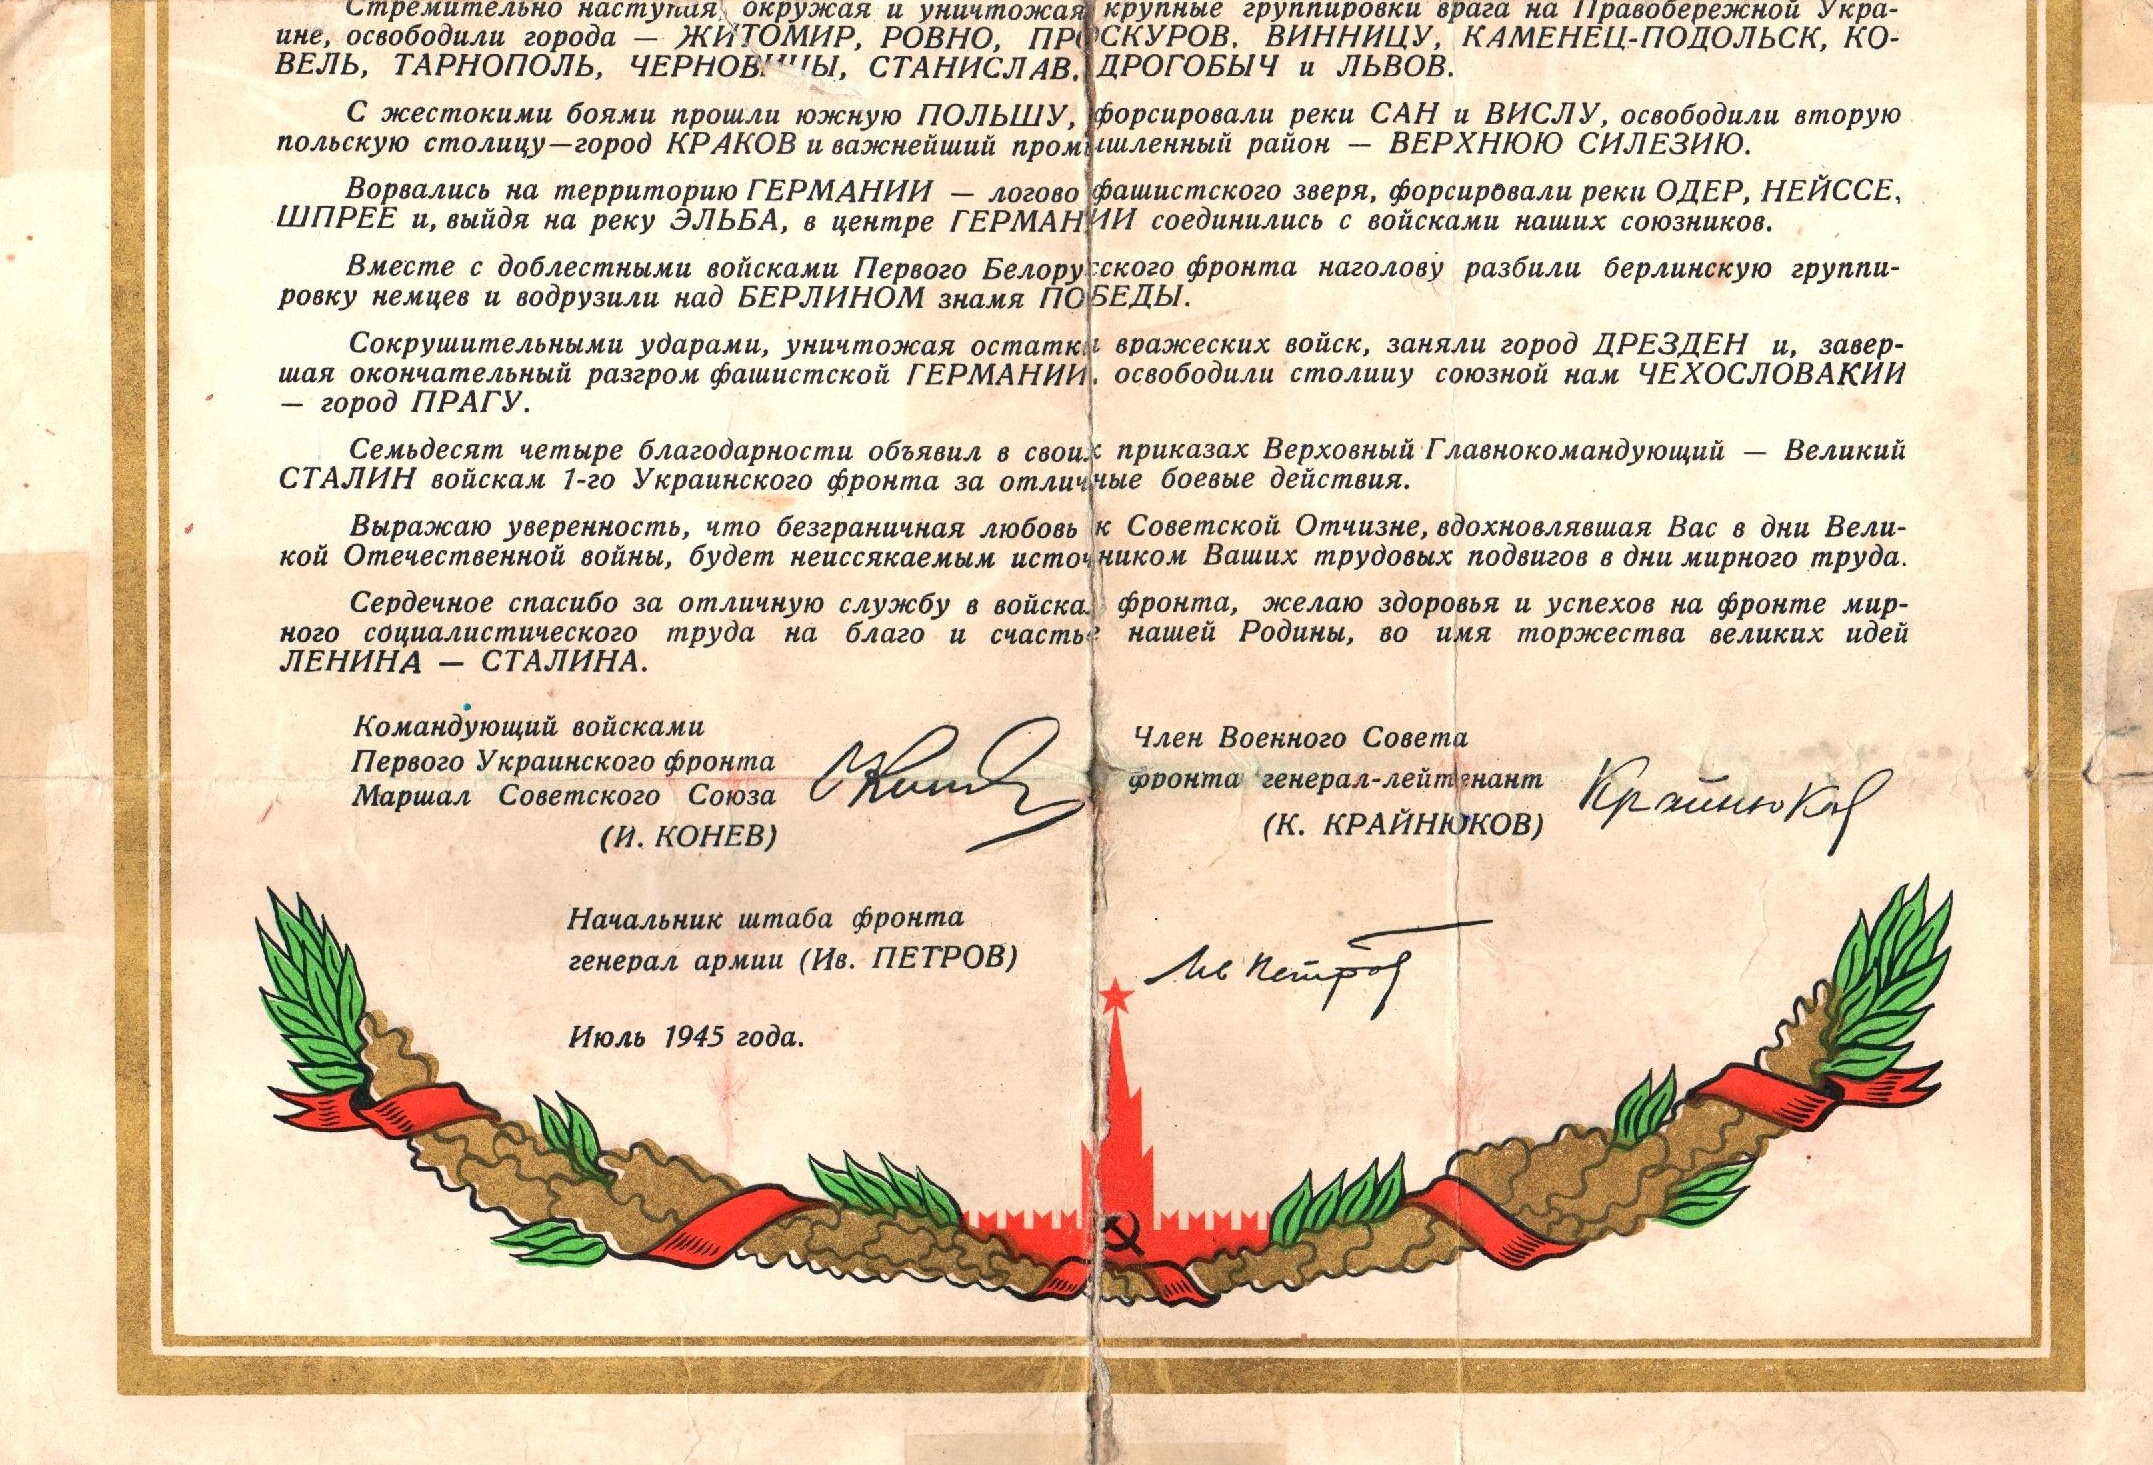 Стремительно наступая, окружая и уничтожая крупные группировки врага на Правобережной Укра-
ине, освободили города — ЖИТОМИР, РОВНО, ПРОСКУРОВ, ВИННИЦУ, КАМЕНЕЦ-ПОДОЛЬСК, КО-
ВЕЛЬ, ТАРНОПОЛЬ, ЧЕРНОВИЦЫ, СТАНИСЛАВ, ДРОГОБЫЧ и ЛЬВОВ.
С жестокими боями прошли южную ПОЛЬШУ, форсировали реки САН и ВИСЛУ, освободили вторую
польскую столицу—город КРАКОВ и важнейший промышленный район — ВЕРХНЮЮ СИЛЕЗИЮ.
Ворвались на территорию ГЕРМАНИИ — логово фашистского зверя, форсировали реки ОДЕР, НЕЙССЕ,
ШПРЕЕ и, выйдя на реку ЭЛЬБА, в центре ГЕРМАНИИ соединились с войсками наших союзников.
Вместе с доблестными войсками Первого Белорусского фронта наголову разбили берлинскую группи-
ровку немцев и водрузили над БЕРЛИНОМ знамя ПОБЕДЫ.
Сокрушительными ударами, уничтожая остатки вражеских войск, заняли город ДРЕЗДЕН и, завер-
шая окончательный разгром фашистской ГЕРМАНИИ, освободили столицу союзной нам ЧЕХОСЛОВАКИИ
— город ПРАГУ.
Семьдесят четыре благодарности объявил в своих приказах Верховный Главнокомандующий — Великий
СТАЛИН войскам 1-го Украинского фронта за отличные боевые действия.
Выражаю уверенность, что безграничная любовь к Советской Отчизне, вдохновлявшая Вас в дни Вели-
кой Отечественной войны, будет неиссякаемым источником Ваших трудовых подвигов в дни мирного труда.
Сердечное спасибо за отличную службу в войсках фронта, желаю здоровья и успехов на фронте мир-
ного социалистического труда на благо и счастье нашей Родины, во имя торжества великих идей
ЛЕНИНА — СТАЛИНА.
Командующий войсками
Первого Украинского фронта
Маршал Советского Союза
(И. КОНЕВ)
Конев
Член Военного Совета
фронта генерал-лейтенант
(К. КРАЙНЮКОВ)
Крайнюков
Начальник штаба фронта
генерал армии (Ив. ПЕТРОВ)
Ив Петров
Июль 1945 года.